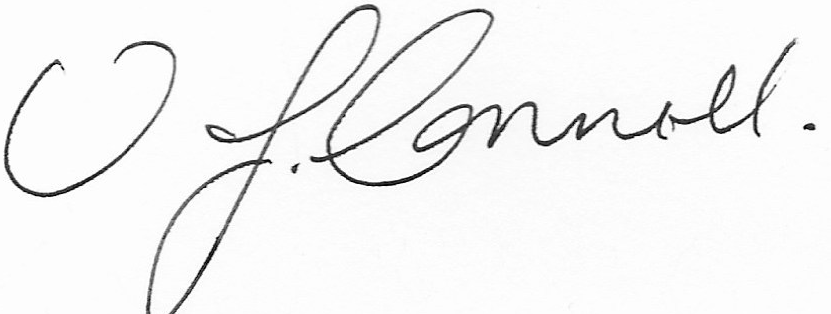 O J. Connoll.